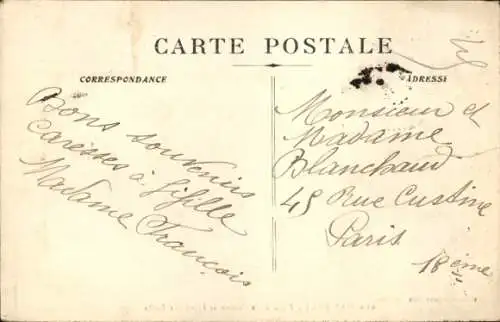 CARTE POSTALE
CORRESPONDANCE
ADRESSE
Bons souvenirs
Caresses à fifille
Madame François
Monsieur et
Madame
Blanchaud
45 Rue Custine
Paris
18ème